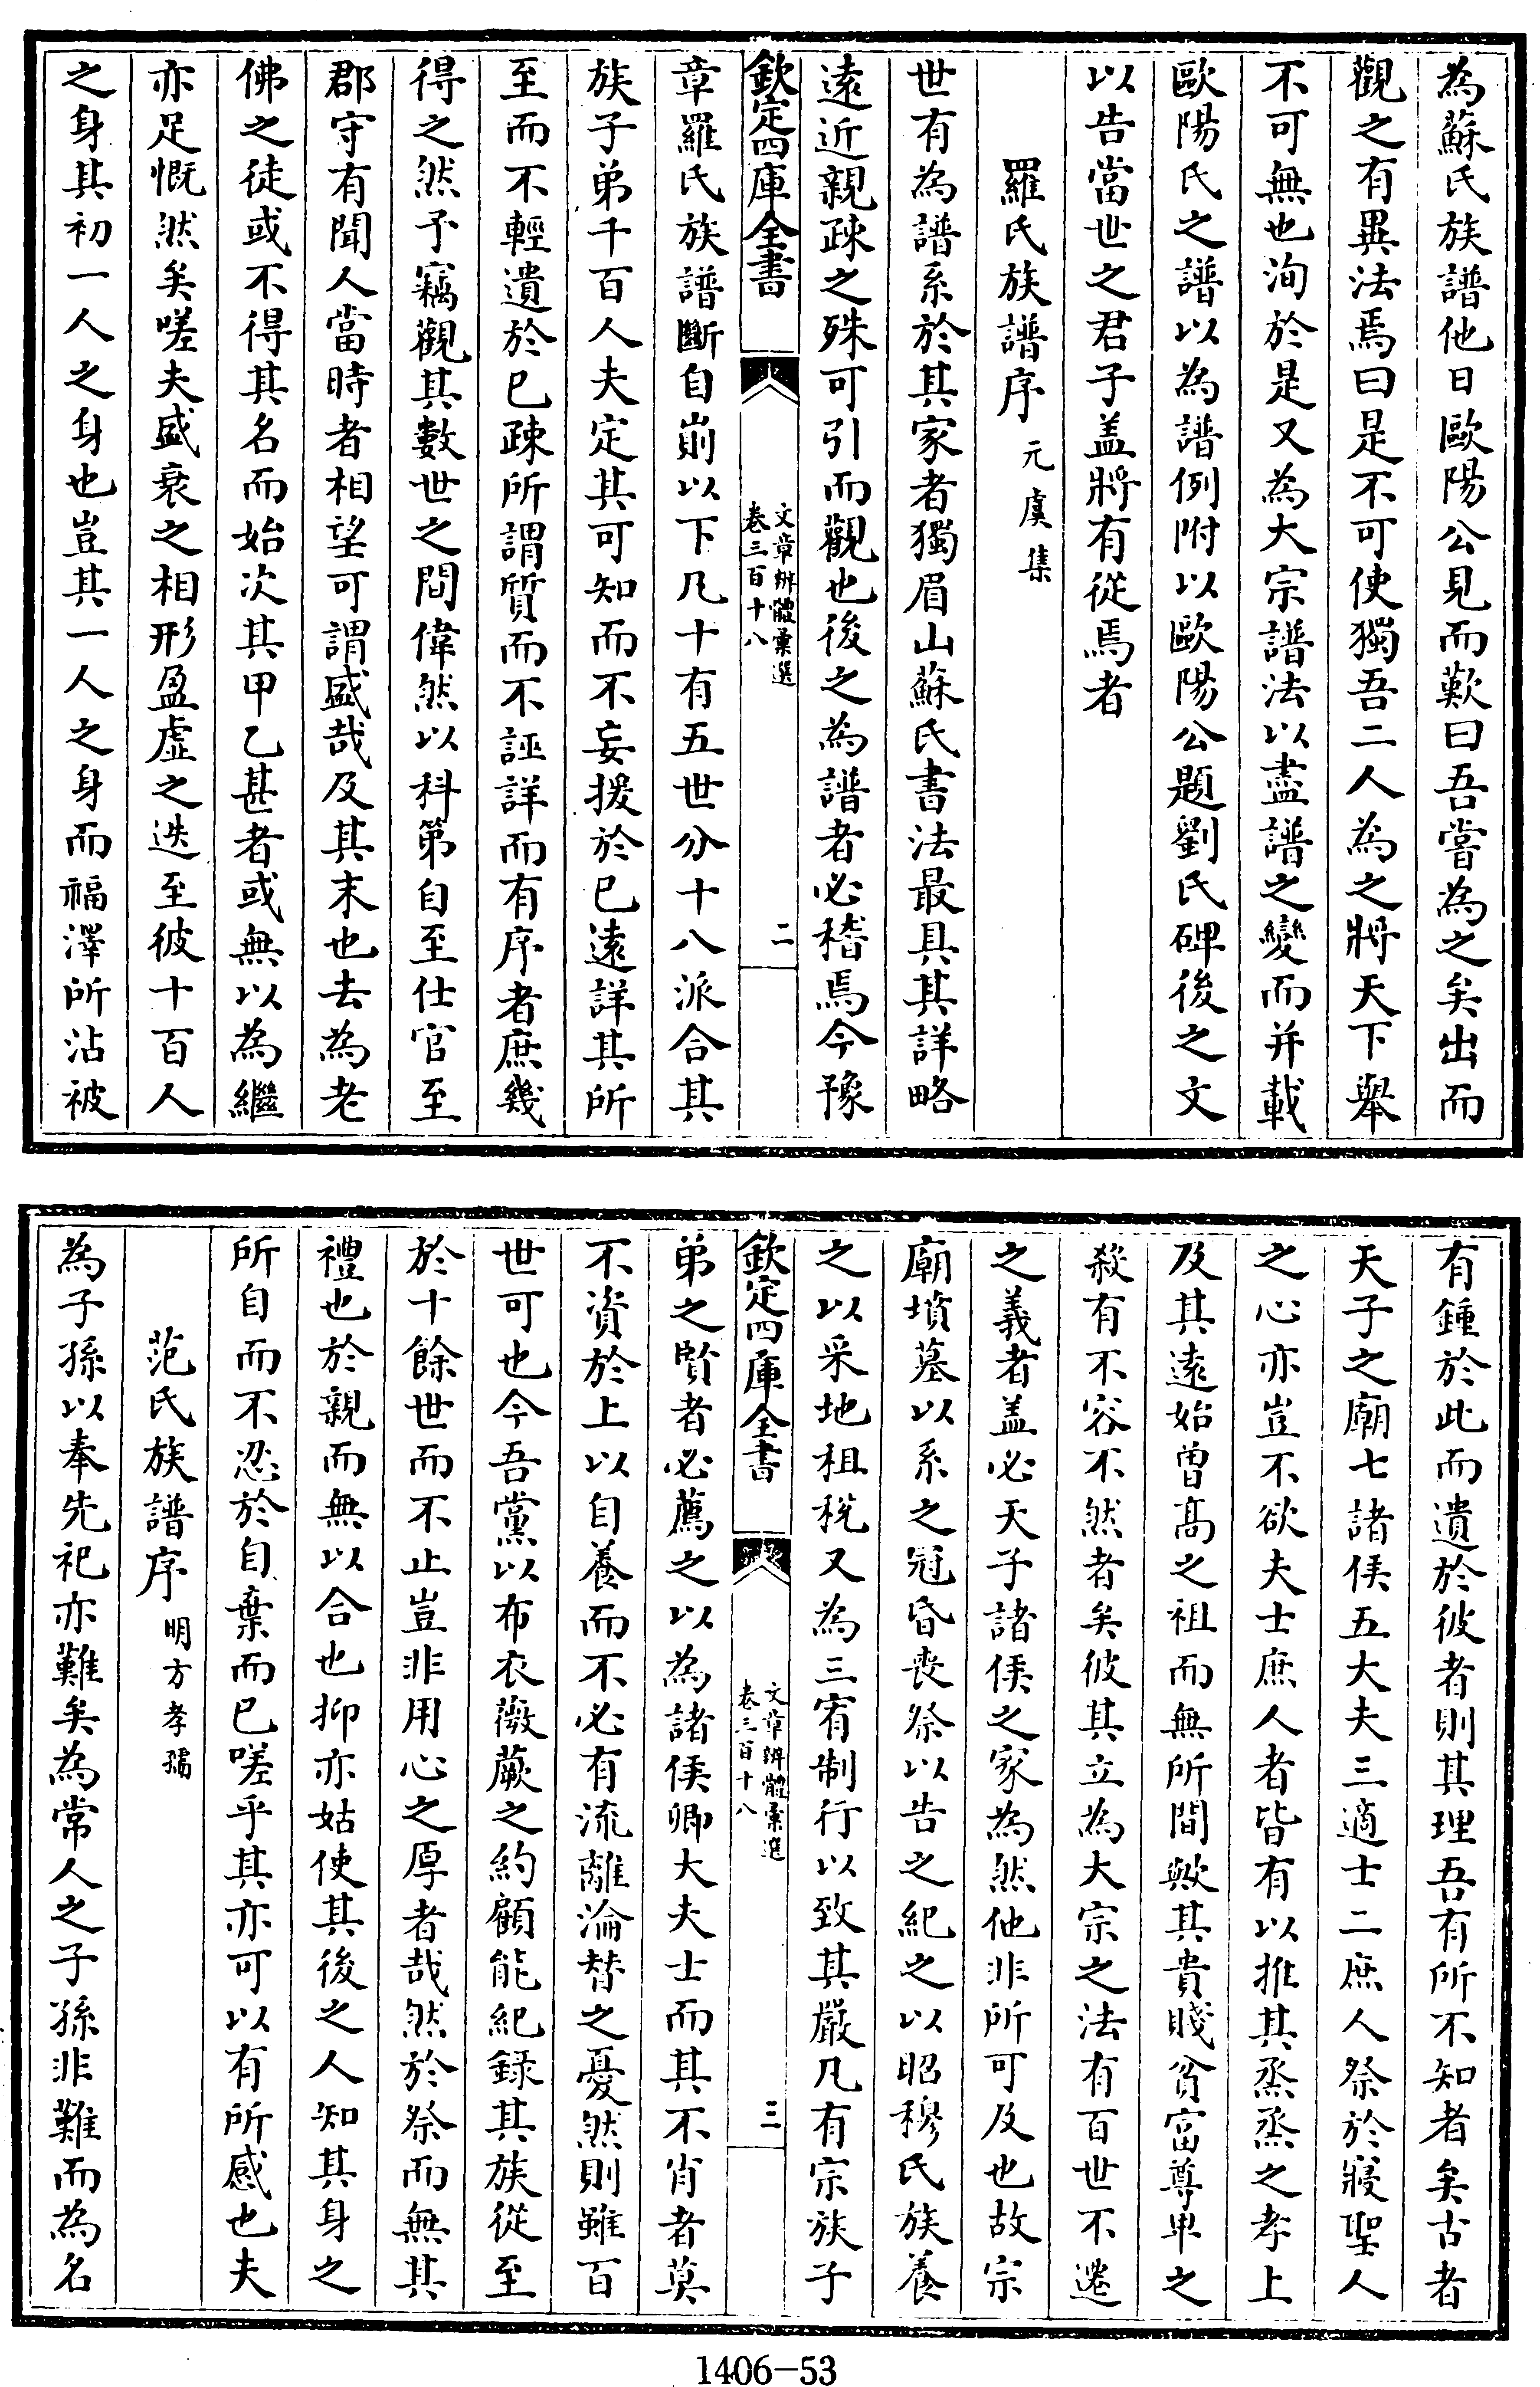 為蘇氏族譜他日歐陽公見而歎曰吾嘗為之矣出而
觀之有異法焉曰是不可使獨吾二人為之將天下舉
不可無也洵於是又為大宗譜法以盡譜之變而并載
歐陽氏之譜以為譜例附以歐陽公題劉氏碑後之文
以告當世之君子盖將有從焉者
羅氏族譜序 元虞集
世有為譜系於其家者獨眉山蘇氏書法最具其詳略
逺近親疎之殊可引而觀也後之為譜者必稽焉今豫
欽定四庫全書
文章辨體彙選
卷三百十八
二
章羅氏族譜斷自崱以下凡十有五世分十八派合其
族子弟千百人夫定其可知而不妄援於已逺詳其所
至而不輕遺於已疎所謂質而不誣詳而有序者庶幾
得之然予竊觀其數世之間偉然以科第自至仕官至
郡守有聞人當時者相望可謂盛哉及其末也去為老
佛之徒或不得其名而始次其甲乙甚者或無以為繼
亦足慨然矣嗟夫盛衰之相形盈虛之迭至彼十百人
之身其初一人之身也豈其一人之身而福澤所沾被
有鍾於此而遺於彼者則其理吾有所不知者矣古者
天子之廟七諸侯五大夫三適士二庶人祭於寢聖人
之心亦豈不欲夫士庶人者皆有以推其烝烝之孝上
及其逺始曽髙之祖而無所間歟其貴賤貧富尊卑之
殺有不容不然者矣彼其立為大宗之法有百世不遷
之義者盖必天子諸侯之家為然他非所可及也故宗
廟墳墓以系之冠昏喪祭以告之紀之以昭穆氏族養
之以采地租稅又為三宥制行以致其嚴凡有宗族子
欽定四庫全書
文章辨體彙選
卷三百十八
三
弟之賢者必薦之以為諸侯卿大夫士而其不肖者莫
不資於上以自養而不必有流離淪替之憂然則雖百
世可也今吾黨以布衣薇蕨之約顧能紀録其族從至
於十餘世而不止豈非用心之厚者哉然於祭而無其
禮也於親而無以合也抑亦姑使其後之人知其身之
所自而不忍於自棄而已嗟乎其亦可以有所感也夫
范氏族譜序 明方孝孺
為子孫以奉先祀亦難矣為常人之子孫非難而為名
1406-53